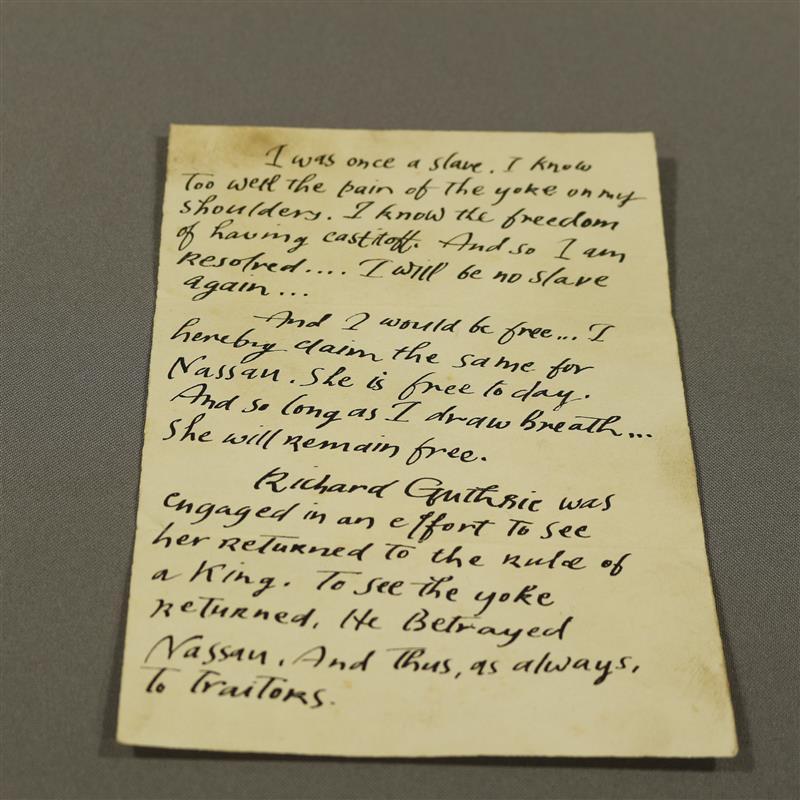 I was once a slave. I know
Too well the pain of the yoke on my
shoulders. I know the freedom
of having cast it off. And so I am
resolved.... I will be no slave
again...
And I would be free... I
hereby claim the same for
Nassau. She is free today.
And so long as I draw breath...
She will remain free.
Richard Guthrie was
engaged in an effort To see
her returned To the rule of
a King. To see the yoke
returned, He Betrayed
Nassau, And Thus, as always,
To Traitors.